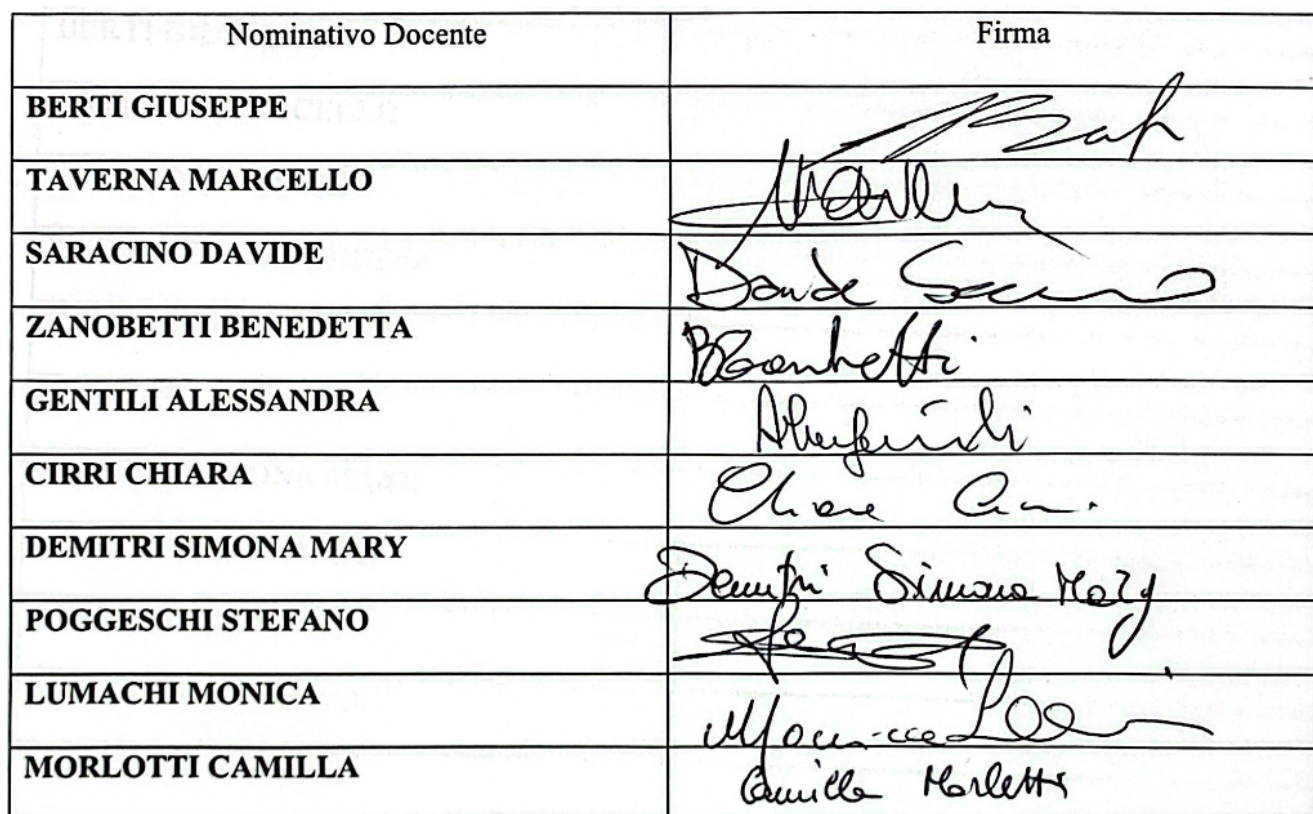 Nominativo Docente Firma
BERTI GIUSEPPE
TAVERNA MARCELLO
SARACINO DAVIDE Davide
ZANOBETTI BENEDETTA BZanobetti
GENTILI ALESSANDRA
CIRRI CHIARA Chiara
DEMITRI SIMONA MARY Demitri Simona Mary
POGGESCHI STEFANO
LUMACHI MONICA Monica
MORLOTTI CAMILLA Camilla Morlotti